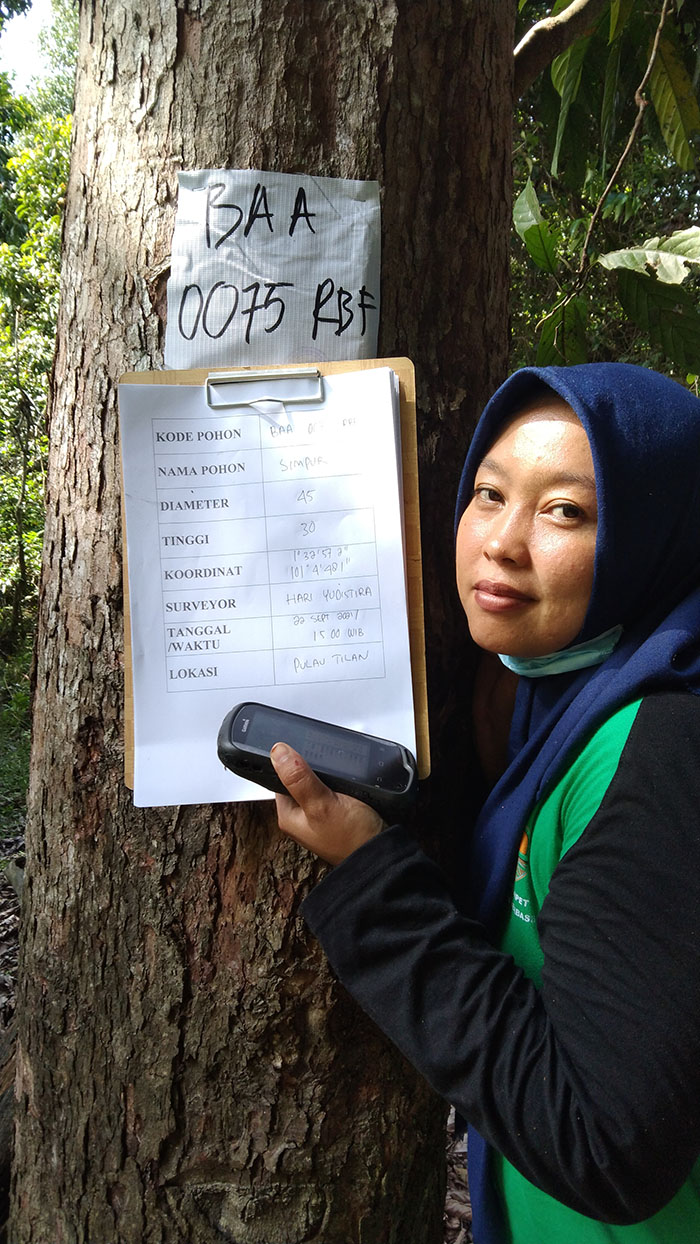 BAA
0075 RBF
KODE POHON BAA 0075 RBF
NAMA POHON SIMPUR
DIAMETER 45
TINGGI 30
KOORDINAT 1° 32' 57.2"
101° 4' 48.1"
SURVEYOR HARI YUDISTIRA
TANGGAL 22 SEPT 2021/
/WAKTU 15.00 WIB
LOKASI PULAU TILAN
GARMIN